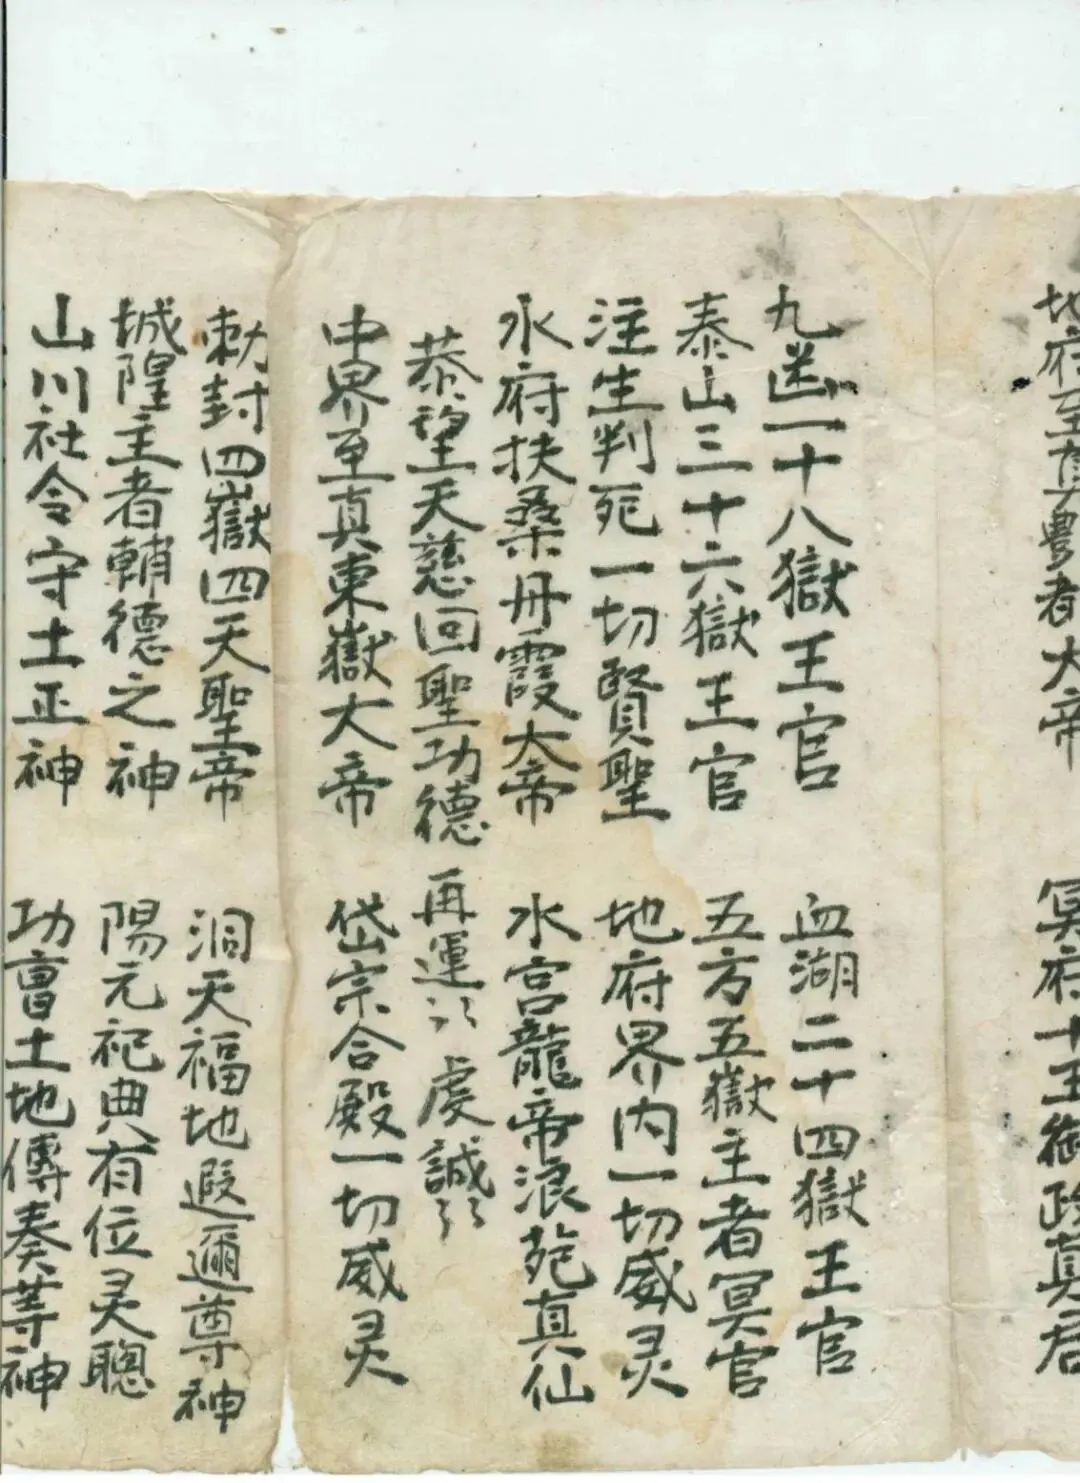 地府至真豊者大帝　冥府十王御政真君
九幽一十八獄王官　血湖二十四獄王官
泰山三十六獄王官　五方五獄主者冥官
注生判死一切賢聖　地府界内一切威灵
水府扶桑丹霞大帝　水宮龍帝浪苑真仙
恭望天慈回聖功德　再運〻〻虔誠〻〻
中界至真東嶽大帝　岱宗合殿一切威灵
勅封四嶽四天聖帝　洞天福地遐邇尊神
城隍主者輔德之神　陽元祀典有位灵聰
山川社令守土正神　功曹土地傳奏等神